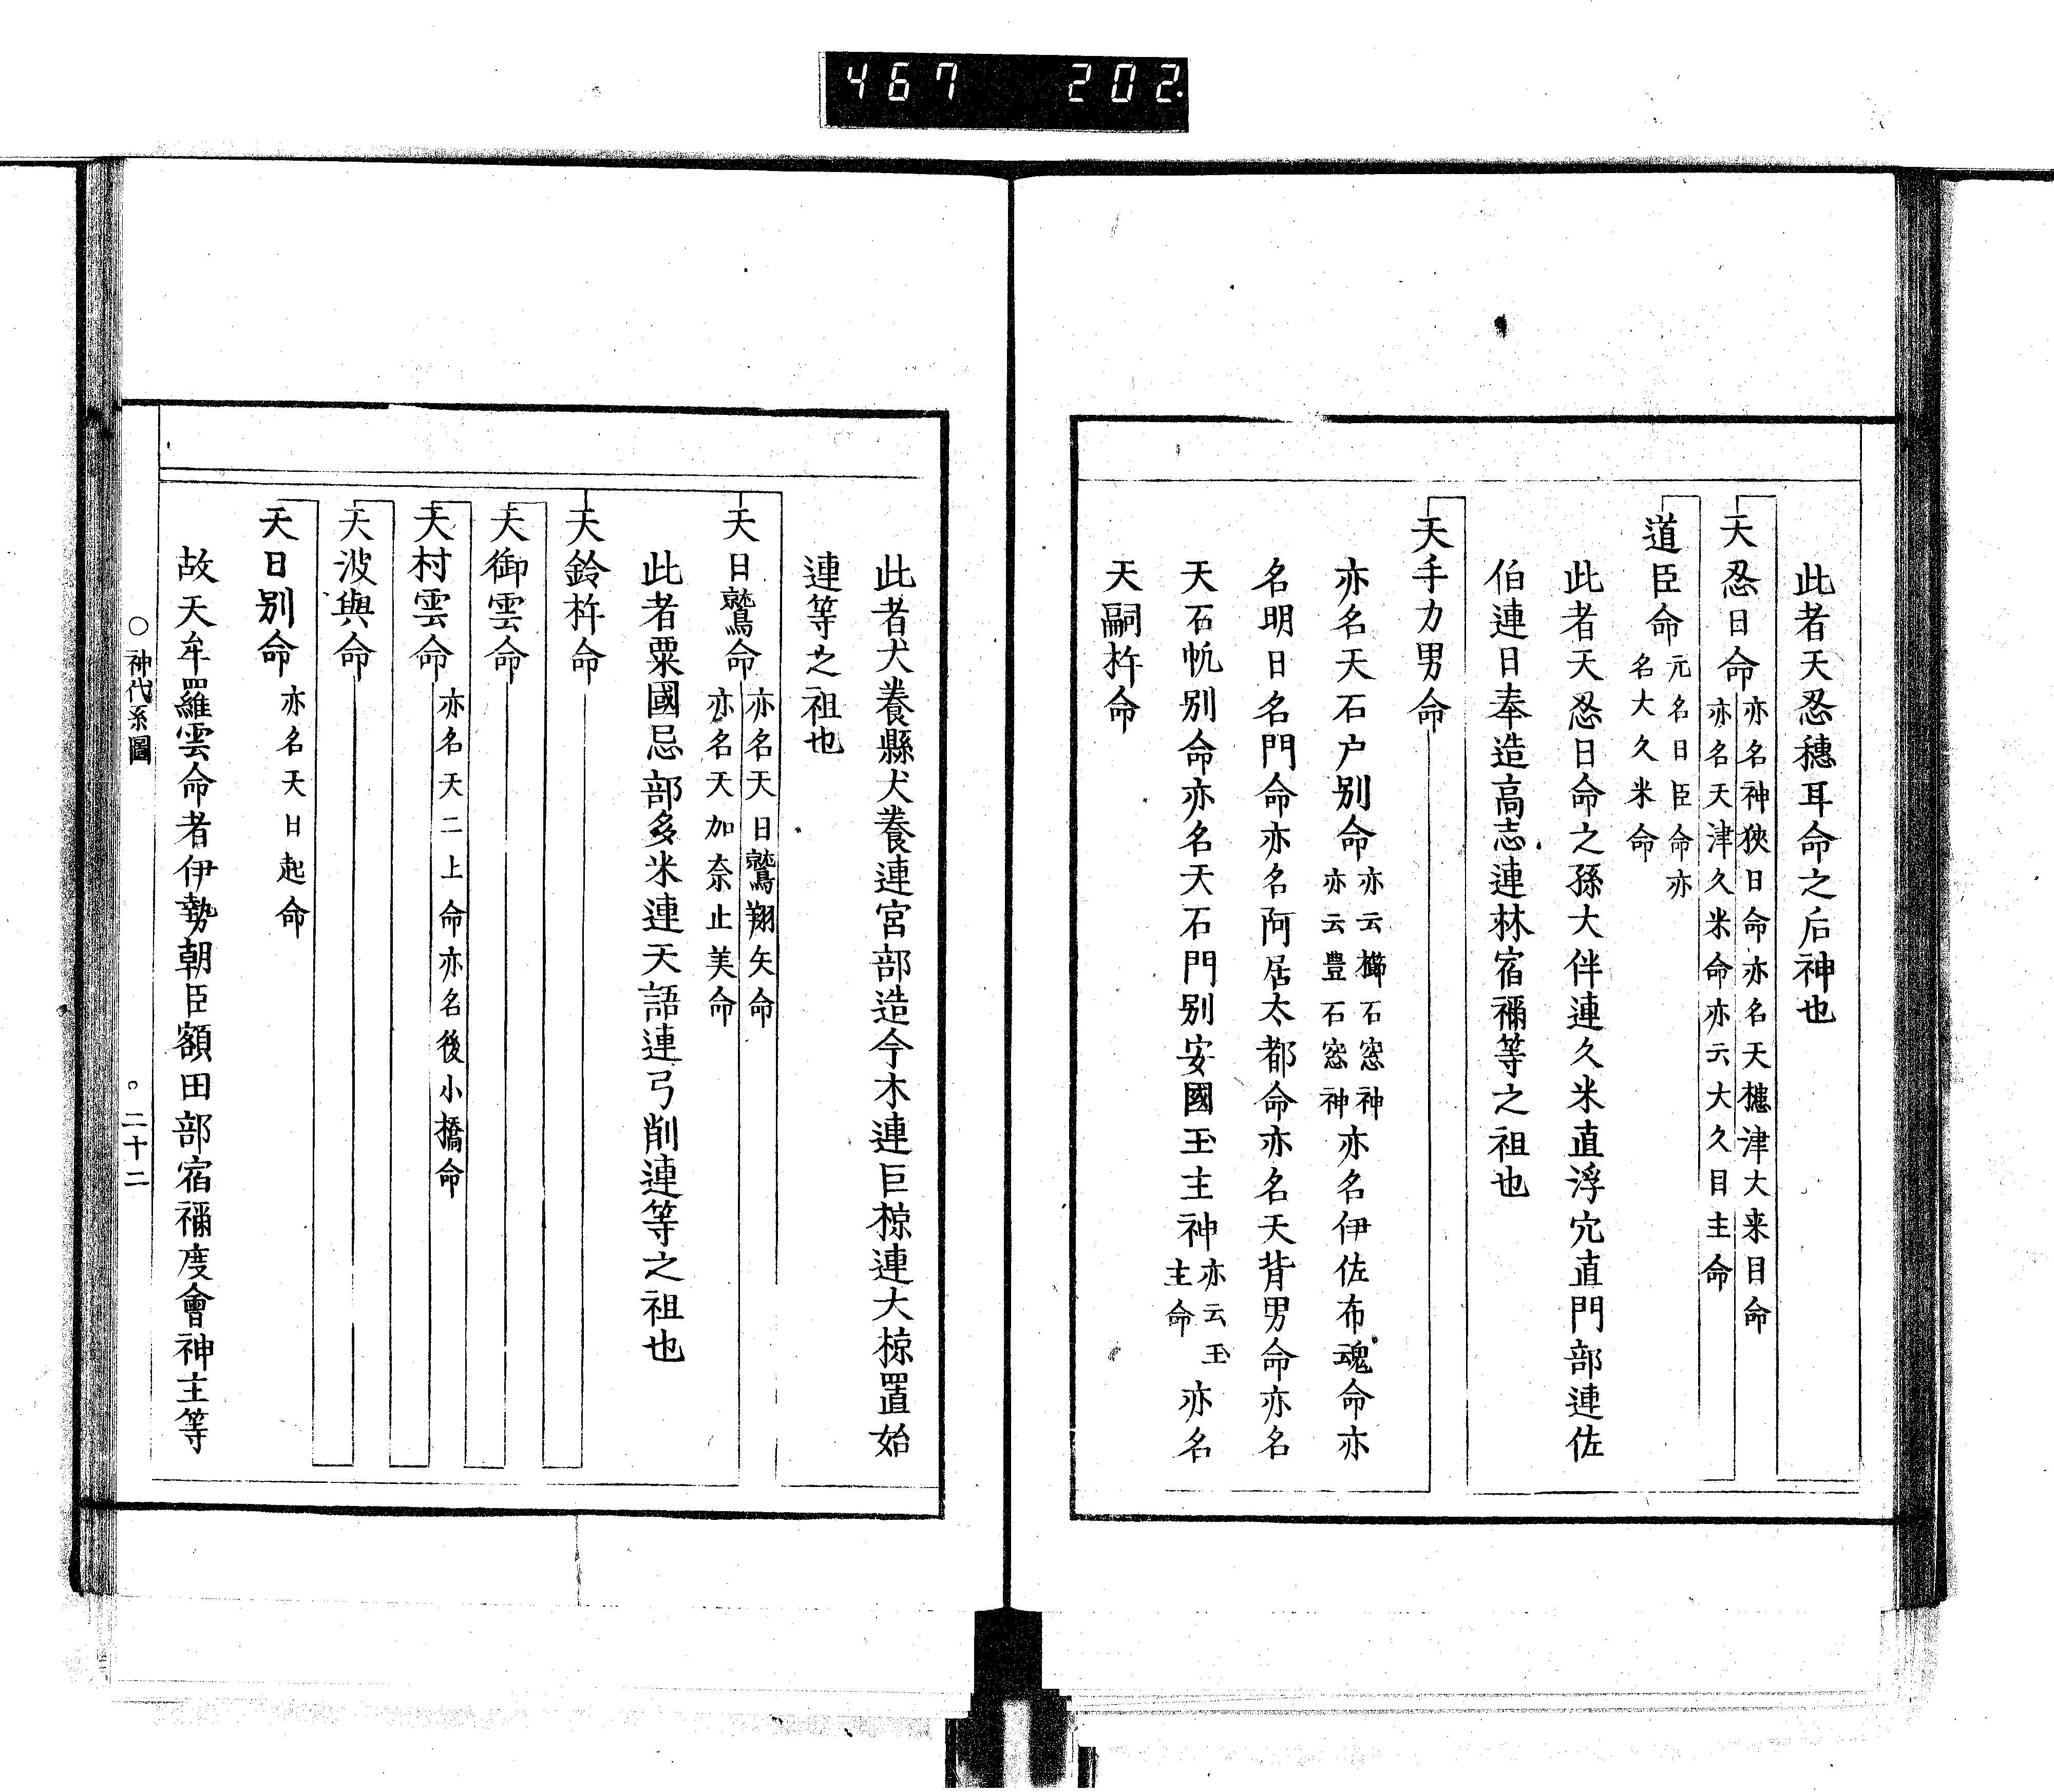 467 202.
此者天忍穗耳命之后神也
天忍日命
亦名神狹日命亦名天槵津大来目命
亦名天津久米命亦云大久目主命
道臣命
元名日臣命亦
名大久米命
此者天忍日命之孫大伴連久米直浮穴直門部連佐
伯連日奉造高志連林宿禰等之祖也
天手力男命
亦名天石户别命
亦云櫛石窓神
亦云豊石窓神
亦名伊佐布魂命亦
名明日名門命亦名阿居太都命亦名天背男命亦名
天石帆别命亦名天石門别安國玉主神
亦云玉
主命
亦名
天嗣杵命
此者犬養縣犬養連宮部造今木連巨椋連大椋置始
連等之祖也
天日鷲命
亦名天日鷲翔矢命
亦名天加奈止美命
此者粟國忌部多米連天語連弓削連等之祖也
天鈴杵命
天御雲命
天村雲命
亦名天二上命亦名後小橋命
天波與命
天日别命
亦名天日起命
故天牟羅雲命者伊勢朝臣額田部宿禰度會神主等
○神代系圖
○二十二